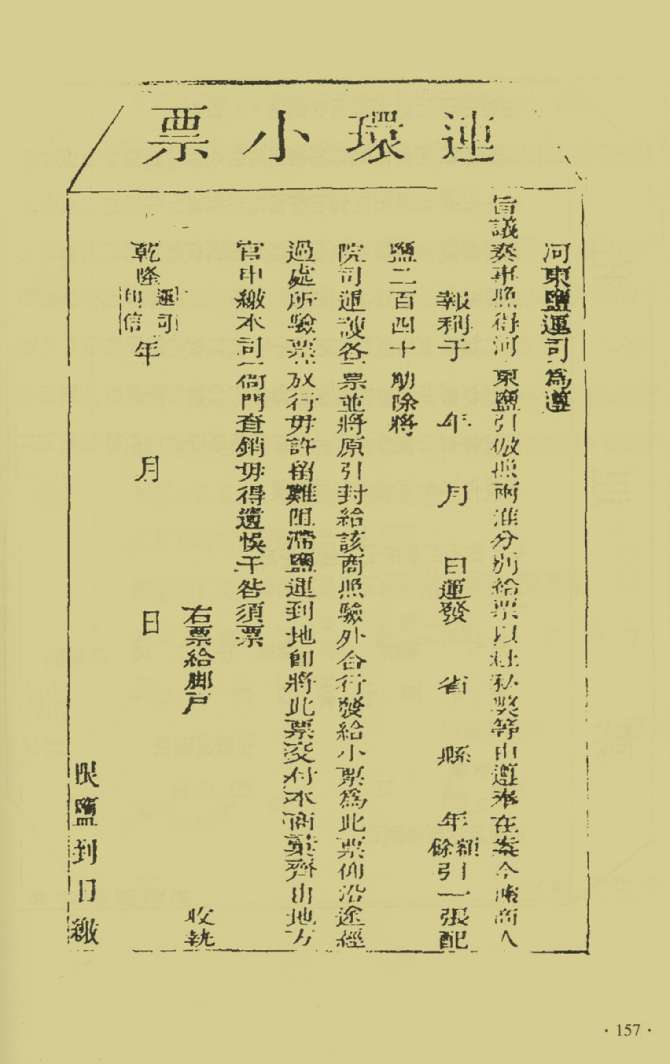 連環小票
河東鹽運司為遵
旨議奏事照得河東鹽引倣照兩淮分別給票以杜私獘等由遵奉在案今據商人
報利于 年 月 日運發 省 縣 年額餘引一張配
鹽二百四十觔除將
院司運護各票並將原引封給該商照驗外合行發給小票為此票仰沿途經
過處所驗票放行毋許留難阻滯鹽運到地即將此票交付本商彙齊由地方
官申繳本司衙門查銷毋得遺悞干咎須票
右票給脚戶 收執
乾隆 年 月 日
運司
印信
限鹽到日繳
·157·